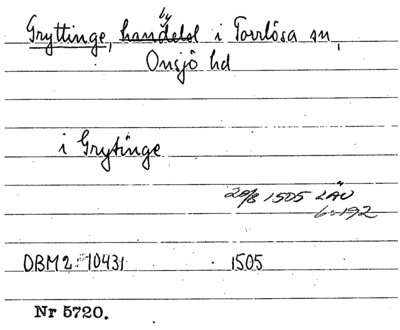 by
Gryttinge, handelsl i Torrlösa sn,
Onsjö hd
i Grytinge
20/8 1505 LÄU
6:192
DBM2:10431 1505
Nr 5720.